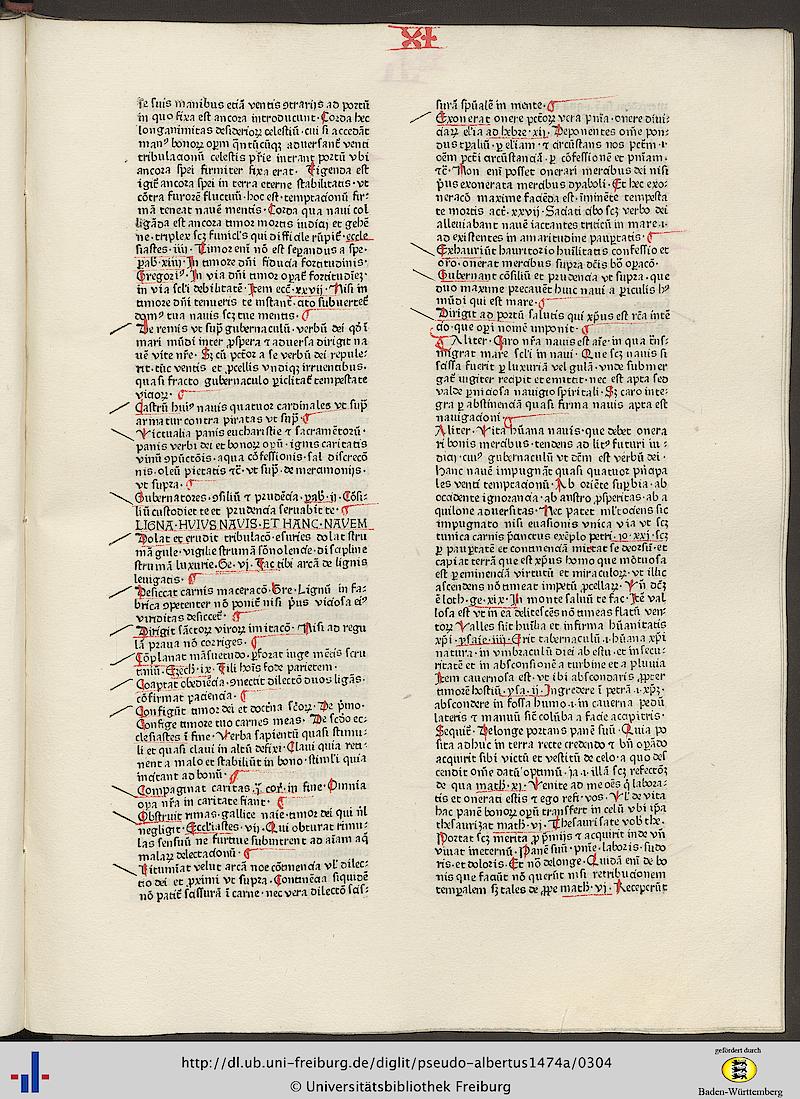 XI
se suis manibus etiā ventis ɔtrarijs ad portū
in quo fixa est ancora introducunt · Corda hec
longanimitas desideriorꝝ celestiū · cui si accedāt
manꝰ bonorꝝ opm̄ qn̄tūcūqꝫ aduersant᷑ venti
tribulacionū celestis pr̄ie intrant portū vbi
ancora spei firmiter fixa erat · Figenda est
igit᷑ ancora spei in terra eterne stabilitatis · vt
cōtra furorē fluctuū · hoc est · temptacionū fir-
mā teneat nauē mentis · Corda qua naui col
ligāda est ancora timor mortis iudicij et gehē
ne · triplex scꝫ funicl's qui difficile rūpit᷑ · eccle
siastes · iiij · Timor eni nō est sepandus a spe ·
ꝓab · xiiij · In timore dn̄i fiducia fortitudinis ·
Gregoriꝰ · In via dn̄i timor opat᷑ fortitudīeꝫ ·
in via scl'i debilitatē · Item ecc̄ · xxvij · Nisi in
timore dn̄i tenueris te instant᷑ · cito subuertet᷑
domꝰ tua nauis scꝫ tue mentis ·
De remis vt sup̄ gubernaculū · verbū dei qd̓ ī
mari mūdi inter ꝓspera ⁊ aduersa dirigit na
uē vite nr̄e · Sꝫ cū pctōr a se verbū dei repule-
rit · tūc ventis et ꝓcellis vndiqꝫ irruentibus ·
quasi fracto gubernaculo piclitat᷑ tempestate
viciorꝝ ·
Castrū huiꝰ nauis quatuor cardinales vt sup̄
armatur contra piratas vt sup̄ ·
Victualia panis eucharistie ⁊ sacramētorū ·
panis verbi dei et bonorꝝ opū · ignis caritatis
vinū ɔpūctōis · aqua cōfessionis · sal discrecō
nis · oleū pietatis ⁊c̄ · vt sup̄ · de meramonijs ·
vt supra ·
Gubernatores · ɔsiliū ⁊ prudēcia · ꝓab · ij · Cōsi-
liū custodiet te et prudencia seruabit te ·
LIGNA · HVIVS NAVIS · ET HANC · NAVEM
Dolat et erudit tribulacō · esuries dolat stru
mā gule · vigilie strumā sōnolencie · disciplıne
strumā luxurie · Ge · vj · Fac tibi arcā de lignis
leuigatis ·
Desiccat carnis maceracō · Gre · Lignū in fa-
brica ɔpetenter nō ponit᷑ nisi p̄us viciosa eiꝰ
viriditas desiccet᷑ ·
Dirigit sāctorꝝ virorꝝ imitacō · Nisi ad regu
lā praua nō corriges ·
Cōplanat māsuetudo · ꝓforat iuge mētis scru
tiniū · Ezech̄ · ix · Fili hoīs fode parietem ·
Coaptat obediēcia · ɔnectit dilectō duos ligās ·
cōfirmat paciencia ·
Configūt timor dei et doctrīa sc̄orꝝ · De p̄mo ·
Confige timore tuo carnes meas · De scd̓o ec-
clesiastes ī fine · Verba sapientū quasi stimu-
li et quasi claui in altū defixi · Claui quia reti-
nent a malo et stabiliūt in bono · stimli quia
incitant ad bonū ·
Compaginat caritas · j · cor̄ · in fine · Omnia
opa nr̄a in caritate fiant ·
Obstruit rimas · gallice naie · timor dei qui n̄l
negligit · Eccl'iastes · vij · Qui obturat rimu-
las sensuū ne furtiue subintrent ad aīam aq̄
malarꝝ delectacionū ·
Bitumīat velut arcā noe cōtinencia vl' dilec-
tio dei et ꝓximi vt supra · Continēcia siquidē
nō patit᷑ scissurā ī carne · nec vera dilectō scis-
surā sp̄ualē in mente ·
Exonerat onere pctōrꝝ vera pn̄ia · onere diui
ciarꝝ el'ia ad hebre · xij · Deponentes om̄e pon-
dus tꝑaliū · ꝑ el'iam · ⁊ circūstans nos pctm̄ · i ·
oēm pcti circūstanciā · ꝑ cōfessionē et pn̄iam ·
⁊c̄ · Non eni posset onerari mercibus dei nisi
p̄us exonerata mercibus dyaboli · Et hec exo-
neracō maxime faciēda est · iminēte tempesta
te mortis act᷑ · xxvij · Saciati cibo scꝫ verbo dei
alleuiabant nauē iactantes triticū in mare · i ·
ad existentes in amaritudine paupertatis ·
Exhauriūt hauritorio humilitatis confessio et
oro̅ · onerat mercibus supra dc̄is bo̅ opacō ·
Gubernant cōsiliū et prudencia vt supra · que
duo maxime precauēt huic naui a piculis hꝰ
mūdi qui est mare ·
Dirigit ad portū salutis qui xp̄us est rc̄a intē
cio · que opi nomē imponit ·
Aliter · Caro nr̄a nauis est ar̄e · in qua tn̄s-
migrat mare scl'i in naui · Que scꝫ nauis si
scissa fuerit ꝑ luxuriā vel gulā · vnde submer
gat᷑ iugiter recipit et emittat · nec est apta sed
valde pniciosa nauigio spiritali · Sꝫ caro inte-
gra ꝑ abstinenciā quasi firma nauis apta est
nauigacioni ·
Aliter · Vita hūana nauis · que debet onera
ri bonis mercibus · tendens ad litꝰ futuri iu-
dicij · cuiꝰ gubernaculū vt dc̄m est verbū dei ·
Hanc nauē impugnāt quasi quatuor pn̄cipa
les venti temptacionū · Ab oriēte supbia · ab
occidente ignorancia · ab austro ꝓsperitas · ab a
quilone aduersitas · Nec patet ml'todens sic
impugnato nisi euasionis vnica via vt scꝫ
tunica carnis p̄cinctus exēplo petri · jo · xxj · scꝫ
ꝑ paupertatē et continenciā mictat se deorsū · et
capiat terrā que est xp̄us homo que mōtuosa
est ꝑ eminenciā virtutū et miraculorꝝ · vt illic
ascendens nō timeat impetū ꝓcellarꝝ · Vn̄ dc̄ꝫ
ē loth · ge · xix · In monte saluū te fac · Itē val
losa est vt in ea delitescēs nō timeas flatū ven-
torꝝ · Valles sūt hūilia et infirma hūanitatis
xp̄i · ysaie · iiij · Erit tabernaculū · i · hūana xp̄i
natura · in vmbraculū diei ab estu · et in secu-
ritatē et in absconsionē a turbine et a pluuia
Item cauernosa est · vt ibi abscondaris · ꝓpter
timorē hostiū · ysa · ij · Ingredere ī petrā · i · xp̄ꝫ ·
abscondere in fossa humo · i · in cauerna pedū
lateris ⁊ manuū sic̄ colūba a facie accipitris ·
Sequit᷑ · Delonge portans panē suū · Quia po
sita adhuc in terra recte credendo ⁊ bn̄ opādo
acquirit sibi victū et vestitū de celo · a quo des
cendit om̄e datū optimū · ja · i · illā scꝫ refectōꝫ
de qua math̄ · xj · Venite ad me oēs q̄ labora-
tis et onerati estis ⁊ ego refi · vos · Vl' de vita
hac panē bonorꝝ opū transfert in celū vbi ip̄a
thesaurizat · math̄ · vj · Thesaurisate vob the ·
Portat scꝫ merita ꝓ p̄mijs ⁊ acquirit inde vn̄
viuat ineternū · Panē suū · pn̄ie · laboris · sudo
ris · et doloris · Et nō delonge · Quidā eni de bo
nis que faciūt nō querūt nisi retribucionem
tempalem sꝫ tales de ꝓpe math̄ · vj · Receperūt
http://dl.ub.uni-freiburg.de/diglit/pseudo-albertus1474a/0304
© Universitätsbibliothek Freiburg
gefördert durch
Baden-Württemberg